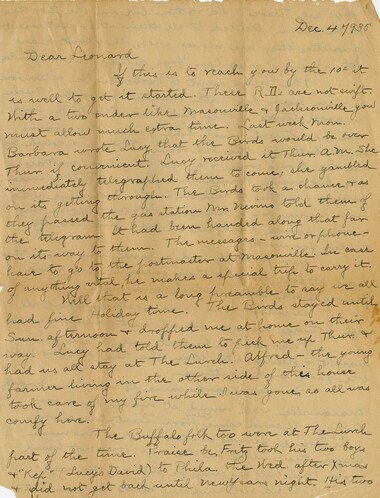 Dec. 4 1935
Dear Leonard
If this is to reach you by the 10th it
is well to get it started. These R.D's are not swift.
With a two ender like Masonville & Jacksonville you
must allow much extra time. Last week Mon.
Barbara wrote Lucy that the Birds would be over
Thur. if convenient. Lucy received it Thur. A.M. She
immediately telegraphed them to come, she gambled
on its getting through. The Birds took a chance & as
they passed the gas station Mr. Nevins told them of
the telegram. It had been handed along that far
on its way to them. The messages - wire or phone -
have to go to the postmaster at Masonville. In case
of anything vital, he makes a special trip to carry it.
Well that is a long preamble to say we all
had fine Holiday time. The Birds stayed until
Sun. afternoon & dropped me at home on their
way. Lucy had told them to pick me up Thur. &
had us all stay at The Lurch. Alfred - the young
farmer living in the other side of this house
took care of my fire while I was gone so all was
comfy here.
The Buffalo folk too were at The Lurch
part of the time. Praise be, Fritz took his two boys
& "Kef" (Lucy's David) to Phila. the Wed. after Xmas
& did not get back until newyears night. His two